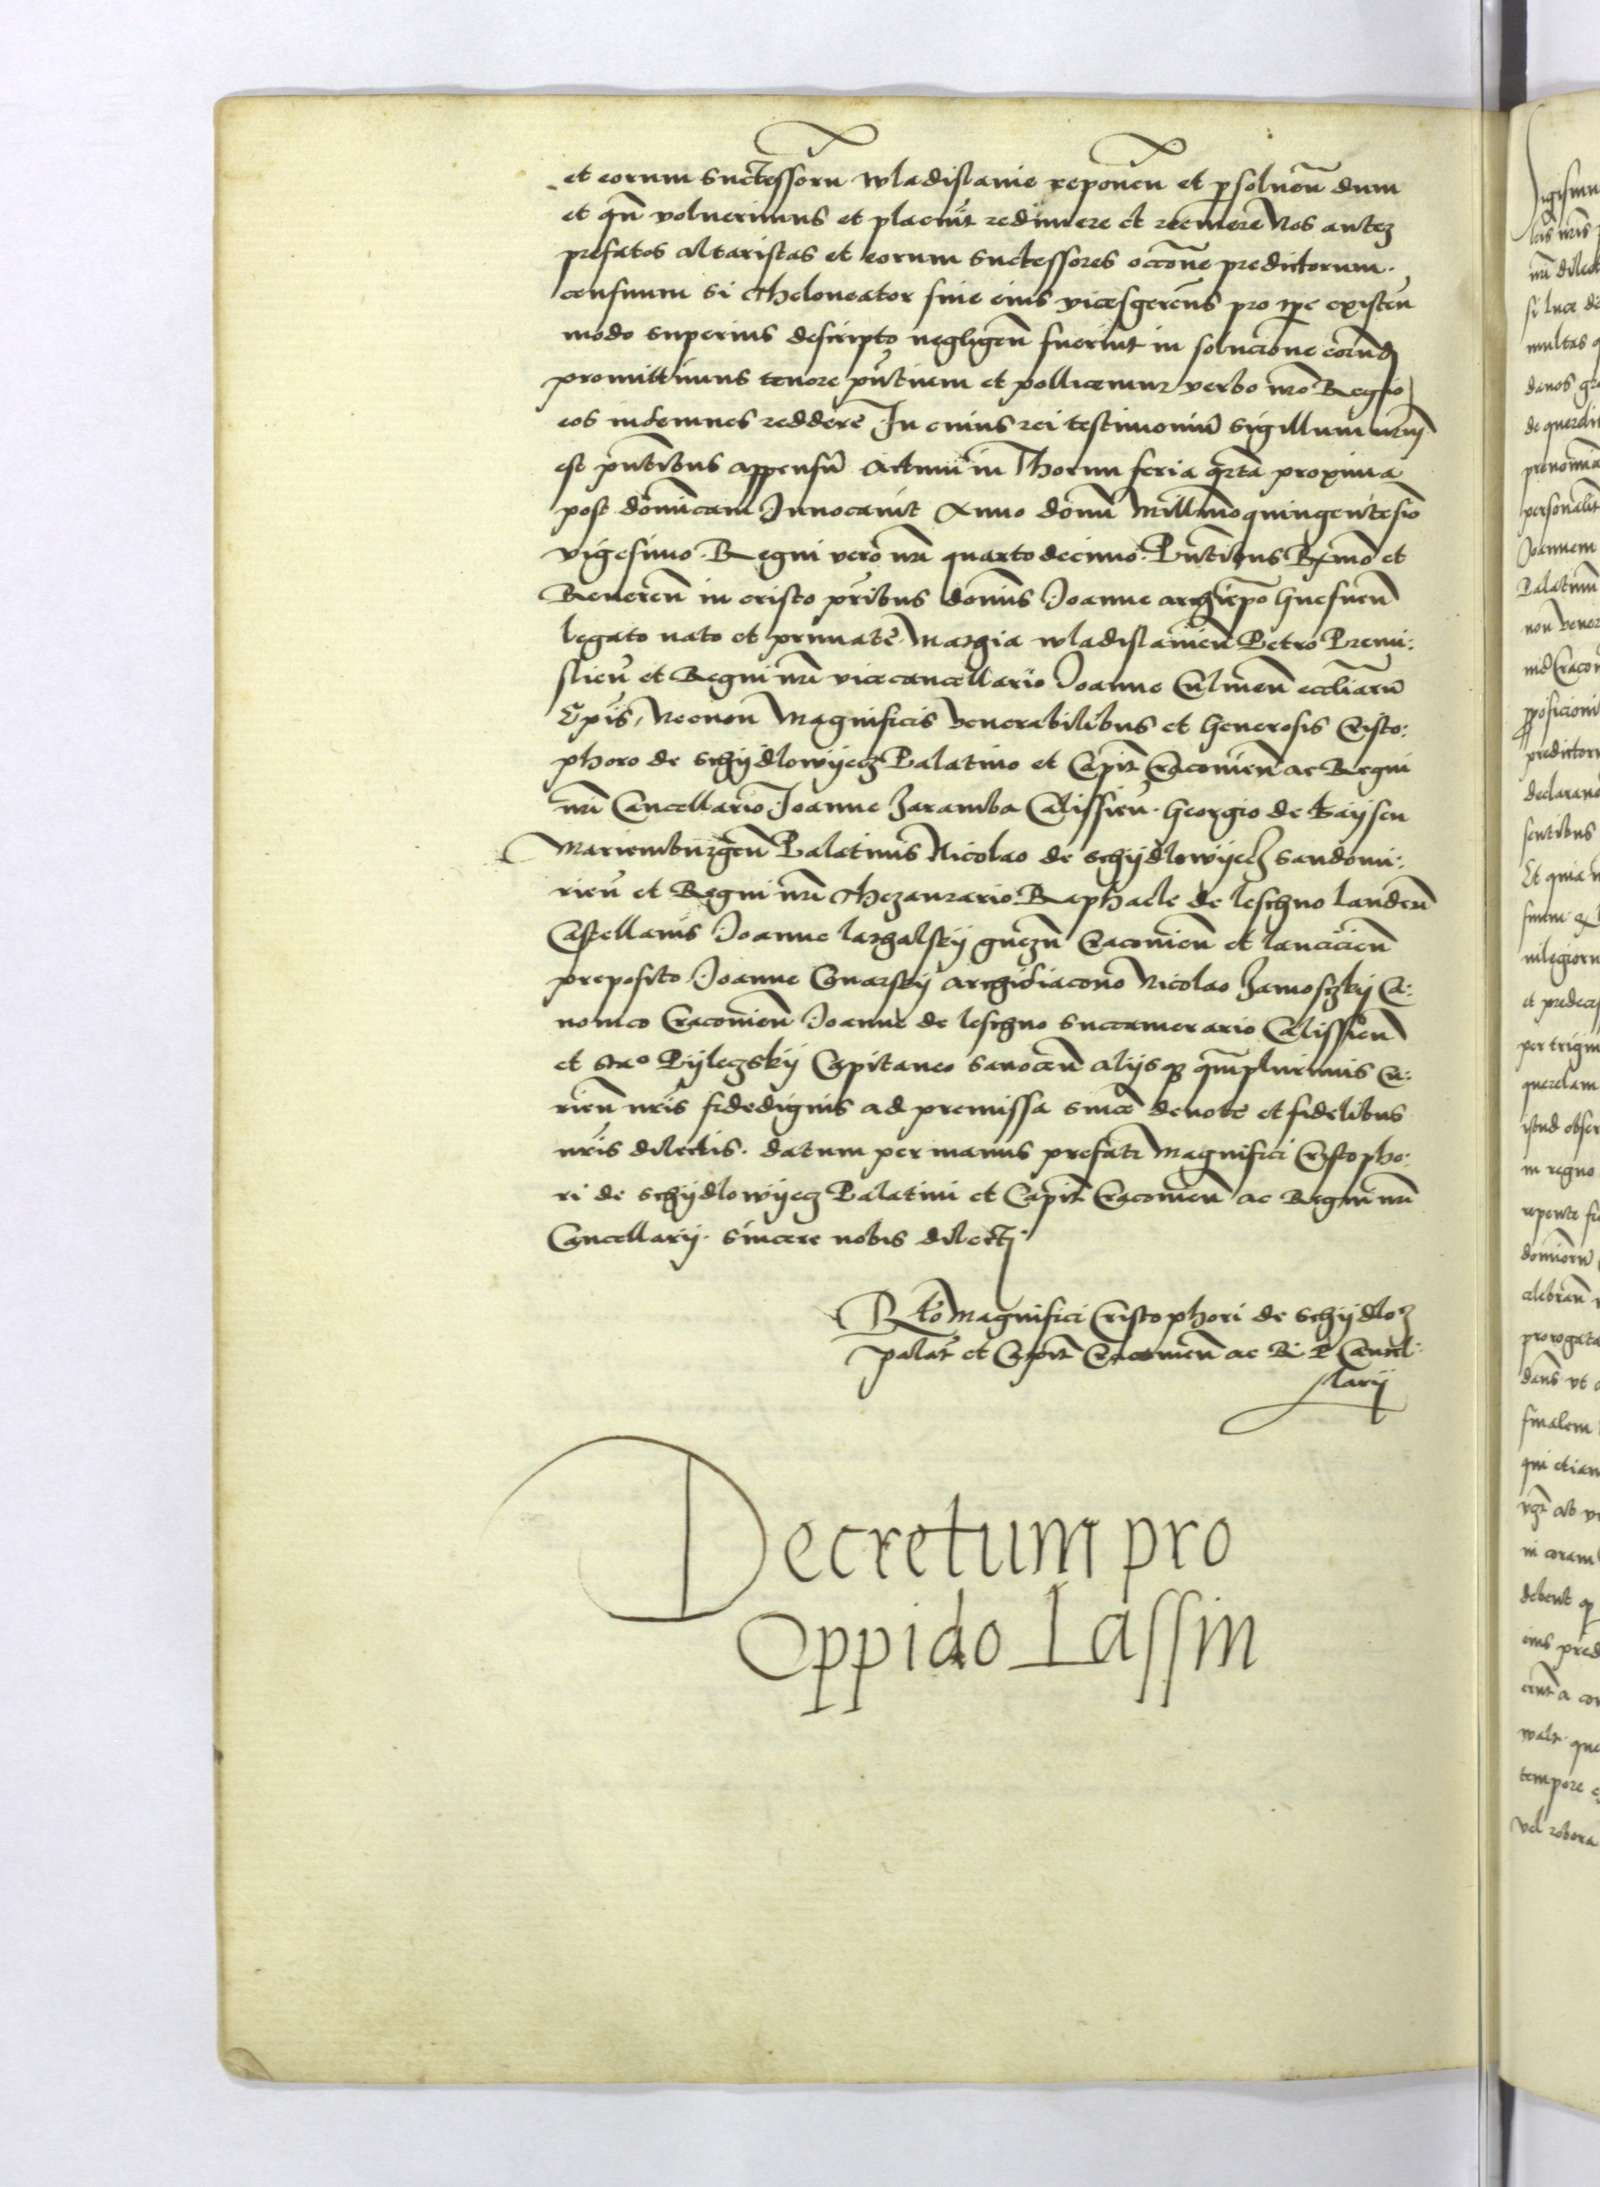 et eorum successoru Wladislavie reponen et psolven dum
et qn voluerimus et placuit redimere et reemere Nos autez
prefatos altaristas et eorum successores occone predictorum
censuum si theloneator sive eius vicesgerens pro tpe existen
modo superius descripto negligen fuerint in solucione eorund
promittimus tenore pntium et pollicemur verbo nro Regio
eos indemnes reddere In cuius rei testimoniu sigillum nrum
est pntibus appensu Actum in Thorun feria qrta proxima
post dominicam Invocavit Anno domi Millimo quingentesio
vigesimo Regni vero nri quartodecimo. Pntibus Rxmo et
Reveren in cristo pribus domis Joanne archiepo Gnesnen
legato nato et primate Mathia Wladislavien Petro Premi:
slien et Regni nri vicecancellario Joanne Culmen eccliaru
Epis, Necnon Magnificis Venerabilibus et Generosis Cristo:
phoro de Schydlowyecz Palatino et Capit Cracovien ac Regni
nri Cancellario Joanne Zaramba Calissien. Georgio de Baysen
Mariemburgen Palatinis Nicolao de Schydlowyecz Sandomi:
rien et Regni nri thezaurario Raphaele de leschno landen
Castellanis Joanne lathalsky gnezn Cracovien et lancicien
preposito Joanne Conarsky archidiacono Nicolao Zamoschky Ca:
nonico Cracovien Joanne de leschno succamerario Calissien
et Stao Pyleczsky Capitaneo sanocen alijsq qmplurimis Cu:
rien nris fidedignis ad premissa since devote et fidelibus
nris dilectis. datum per manus prefati Magnifici Cristopho:
ri de Schydlowyecz Palatini et Capit Cracovien ac Regni nri
Cancellarij. sincere nobis dilecti
Rlo Magnifici Cristophori de Schydlo
palat et Capit Cracovien ac R. P. Cancel:
larij
Decretum pro
Oppido Lassin